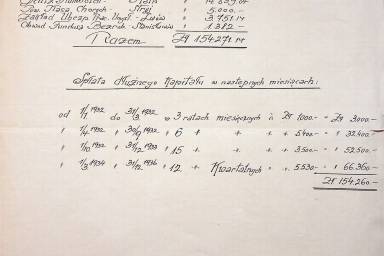 Stryj 14.889.04
Pow. Kasa Chorych - Stryj 5.000.-
Zakład Ubezp. Prac. Umysł. - Lwów 3.751.14
Obwod. Fundusz Bezrob. Stanisławów 1.212.-
Razem Zł 154271.14
Spłata dłużnego Kapitału w następnych miesiącach:
od 1/1 1932 do 31/3 1932 w 3 ratach miesięcznych à Zł 1000.- = Zł 3000.-
" 1/4 1932 " 30/9 1932 " 6 " " " 5400.- = " 32.400
" 1/10 1932 " 31/12 1933 " 15 " " " 3500.- = " 52.500
" 1/3 1934 " 31/12 1936 " 12 " Kwartalnych " " 5.530.- " 66.360.-
Zł 154.260.-